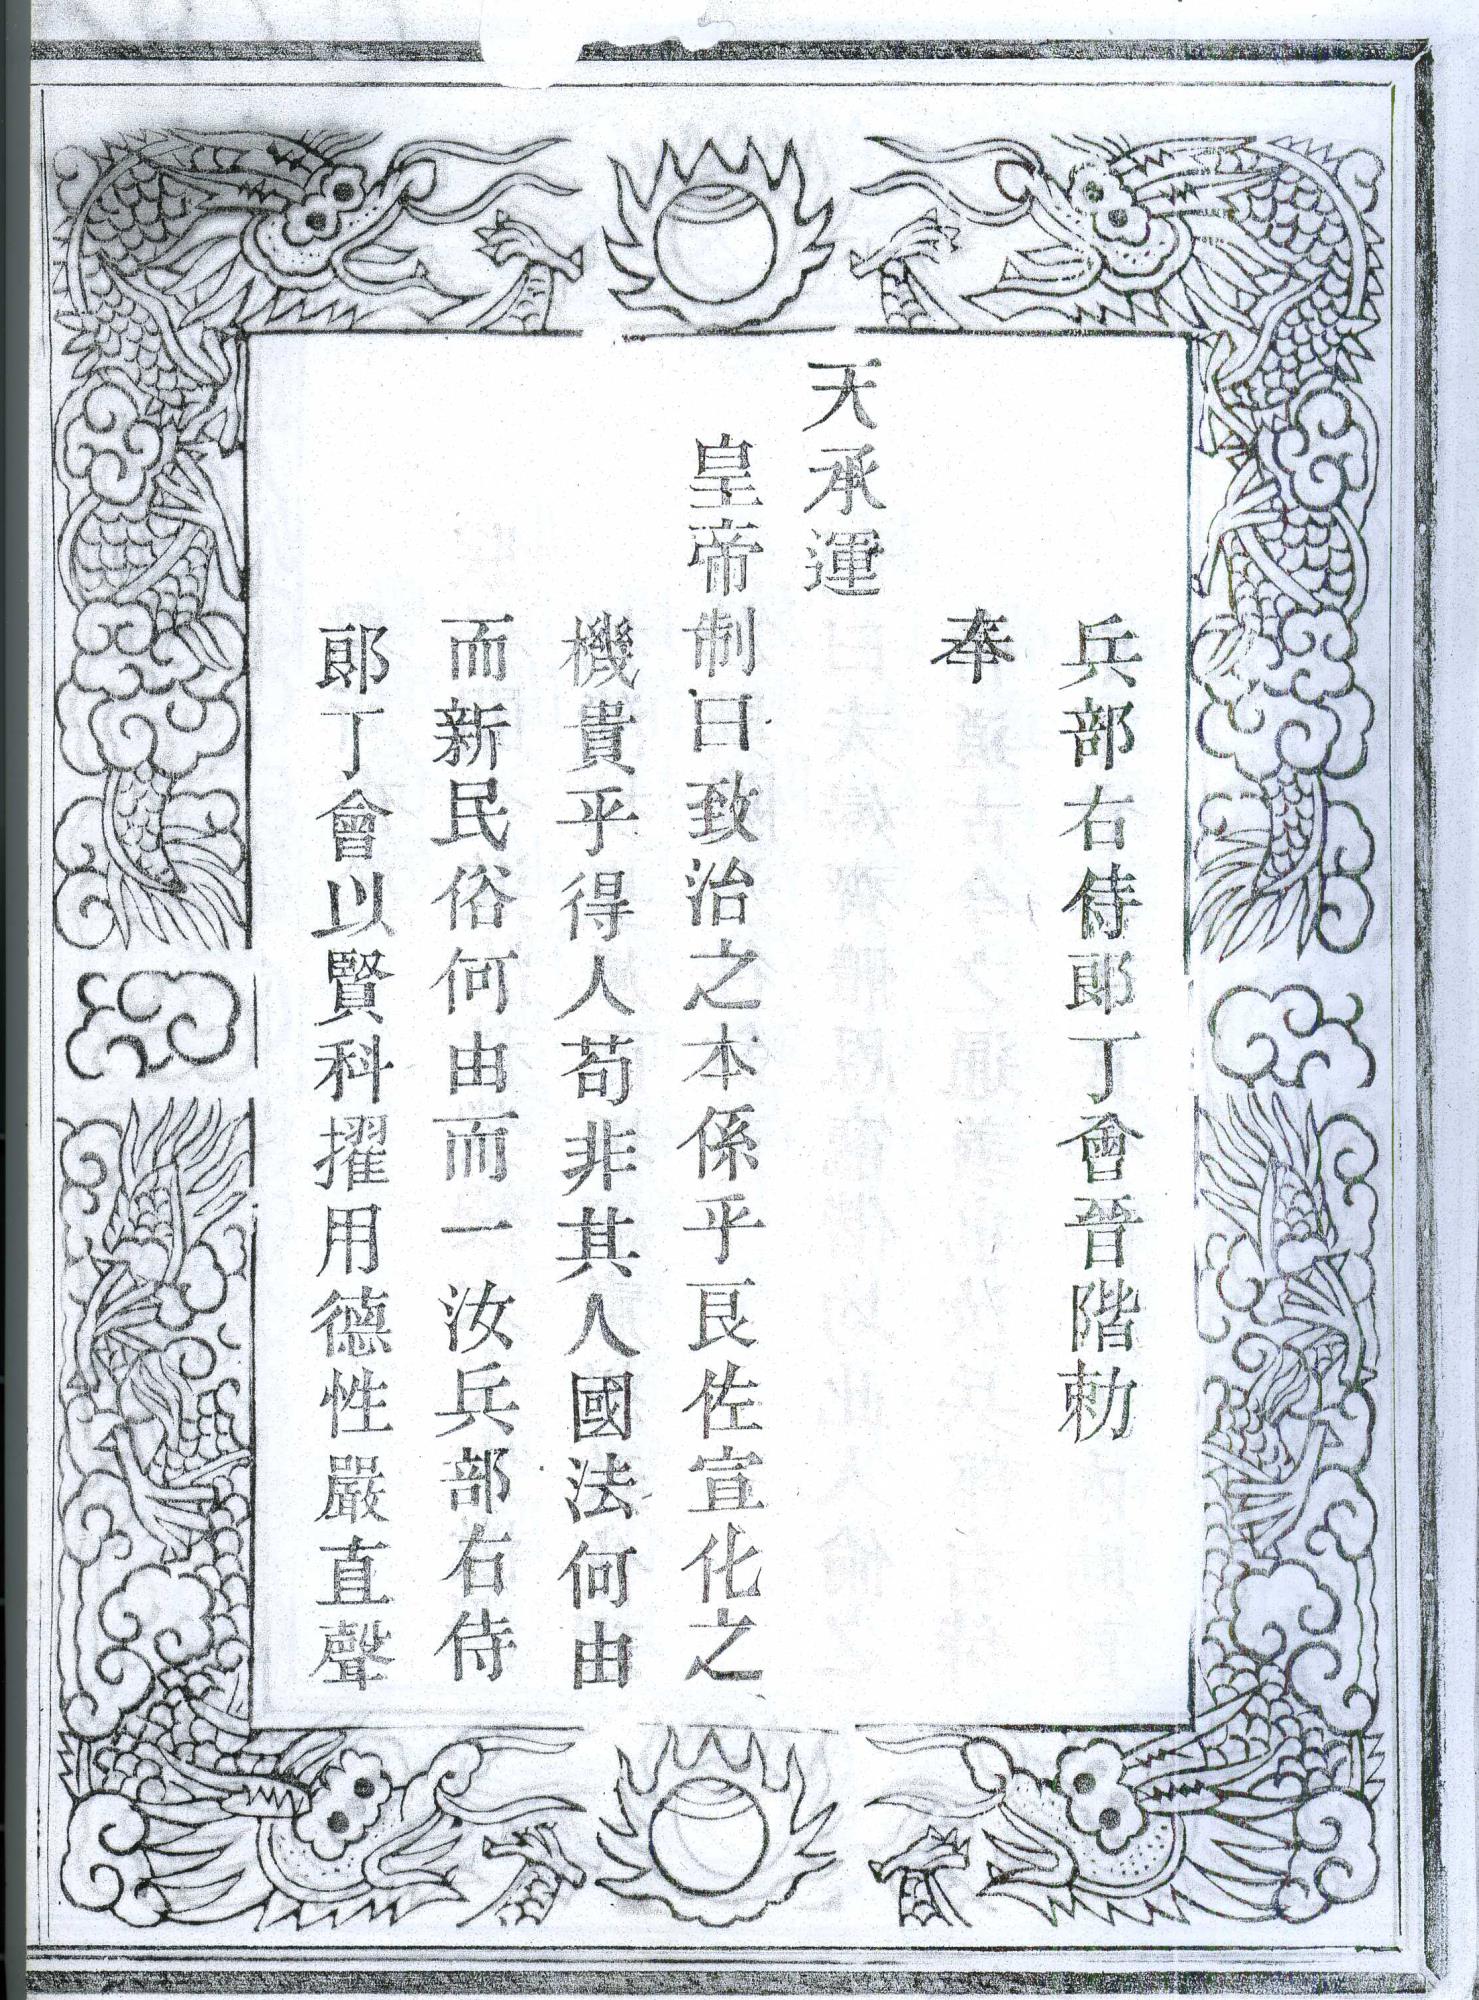 兵部右侍郎丁會晉階勅
奉
天承運
皇帝制曰致治之本係乎良佐宣化之
機貴乎得人苟非其人國法何由
而新民俗何由而一汝兵部右侍
郎丁會以賢科擢用德性嚴直聲